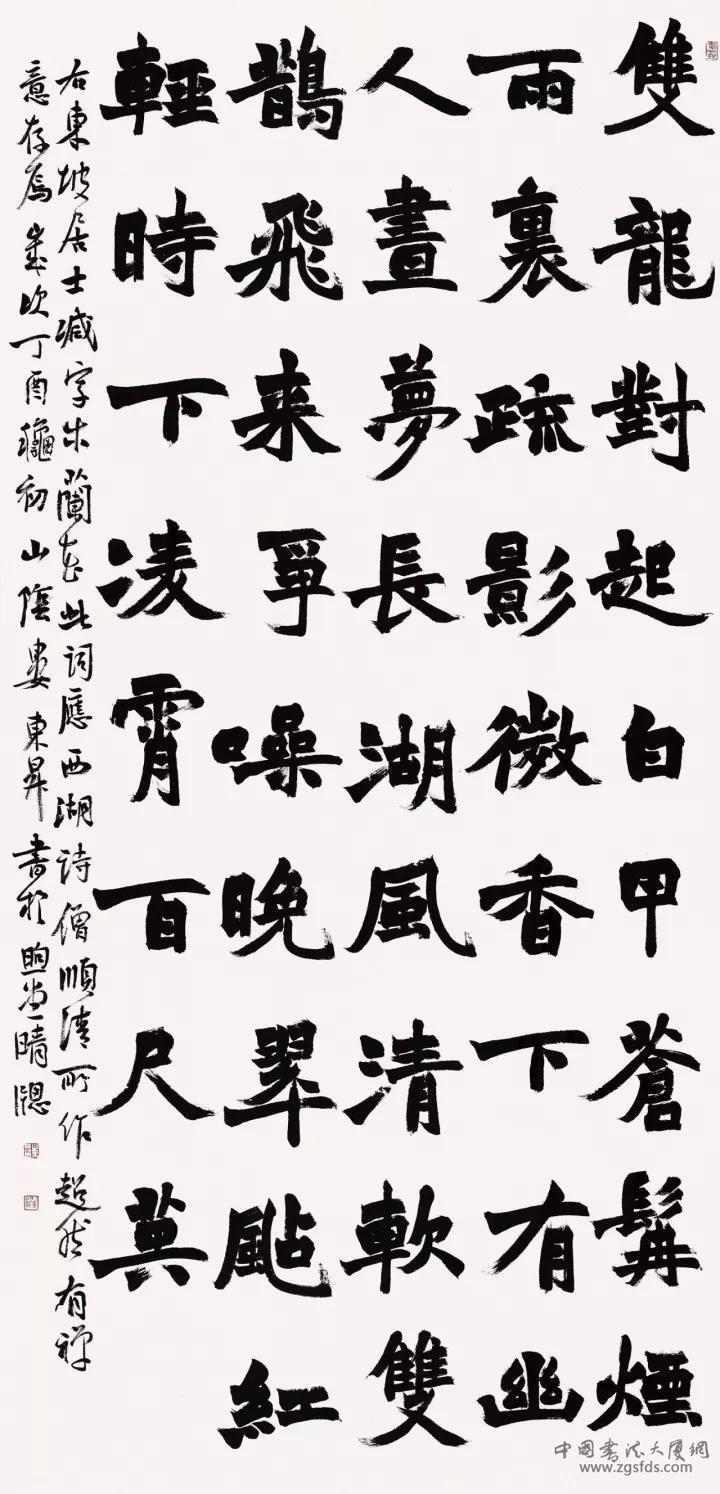 雙龍對起白甲蒼髯煙
雨裏疏影微香下有幽
人晝夢長湖風清軟雙
鵲飛来爭噪晚翠颭紅
輕時下凌霄百尺英
右東坡居士減字木蘭花此詞應西湖詩僧順清所作超然有禪
意存焉歲次丁酉龝初山陰婁東昇書於煦堂晴牕
中國書法大厦網
www.zgsfds.com